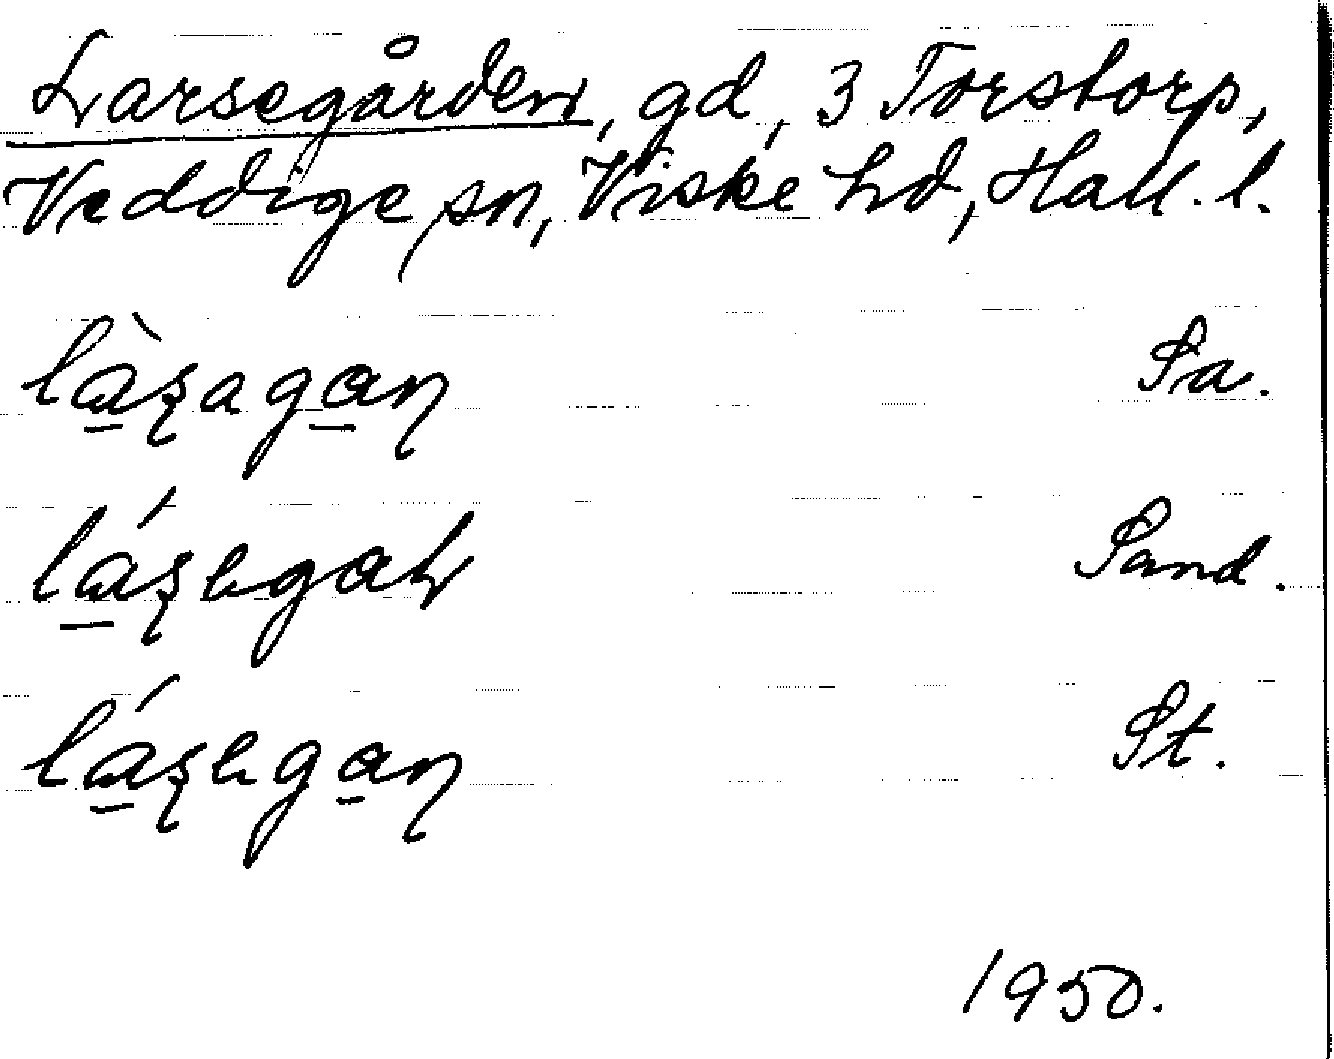 Larsegården, gd, 3 Torstorp,
Veddige sn, Viske hd, Hall. l.
là̱ʂaga̱ɳ Sa.
lá̱ʂɐgaɽ Sand.
lá̱ʂɐga̱ɳ St.
1950.